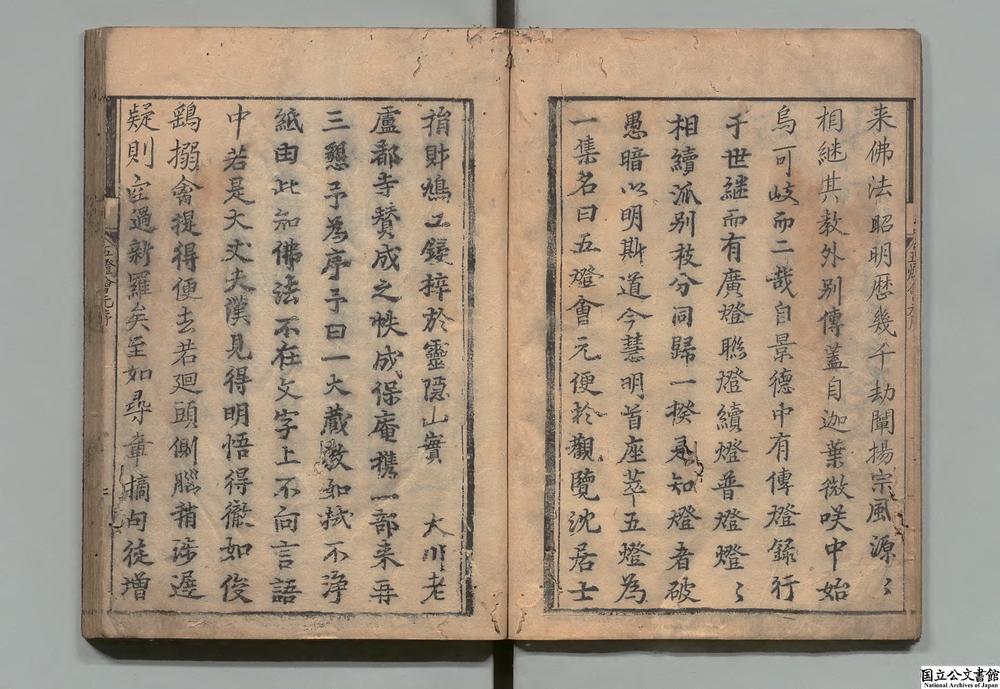 来佛法昭明歷幾千劫闡揚宗風源〻
相繼其敎外別傳蓋自迦葉微咲中始
烏可岐而二哉自景德中有傳燈録行
于世継而有廣燈聯燈續燈普燈燈〻
相續派別枝分同歸一揆是知燈者破
愚暗以明斯道今慧明首座萃五燈為
一集名曰五燈會元便於觀覽沈居士
捐財鳩工鋟梓於靈隠山實　大川老
盧都寺賛成之帙成保庵携一部来再
三懇予為序予曰一大蔵教如拭不浄
紙由此知佛法不在文字上不向言語
中若是大丈夫漢見得明悟得徹如俊
鷂搦禽提得便去若廻頭側腦稍涉遲
疑則空過新羅矣至如尋章摘句徒増
五燈會元序
国立公文書館
National Archives of Japan